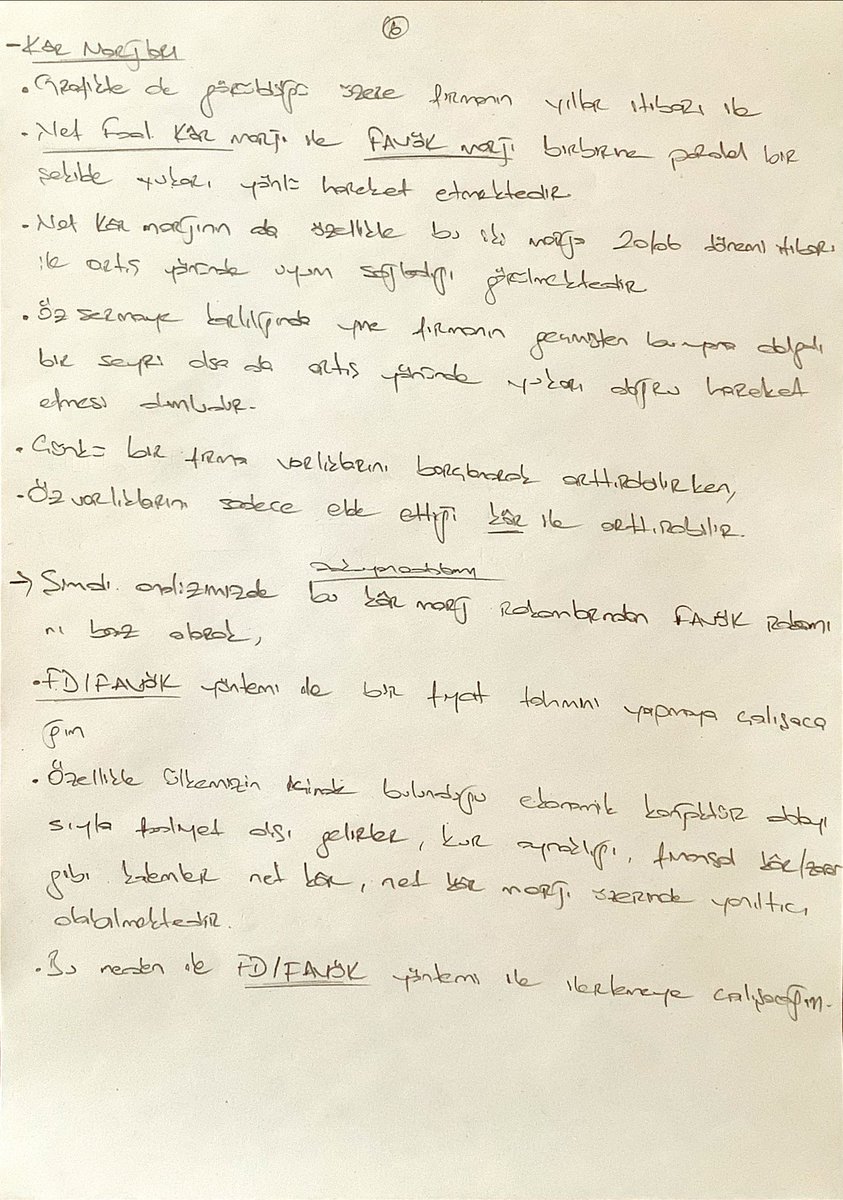 6
- Kâr Marjları
. Grafikte de görüldüğü üzere firmanın yıllar itibarı ile
. Net Faal Kâr marjı ile FAVÖK marjı birbirine paralel bir
şekilde yukarı yönlü hareket etmektedir
. Net Kâr marjının da özellikle bu iki marja 20/06 dönemi itibarı
ile artış yönünde uyum sağladığı görülmektedir
. Öz sermaye karlılığında yine firmanın geçmişten bu yana dalgalı
bir seyri olsa da artış yönünde yukarı doğru hareket
etmesi olumludur.
. Çünkü bir firma varlıklarını borçlanarak arttırabilirken,
. Öz varlıklarını sadece elde ettiği kâr ile arttırabilir.
→ Şimdi analizimizde bu kâr marjı rakamlarından FAVÖK rakamı
nı baz alarak,
. FD/FAVÖK yöntemi ile bir fiyat tahmini yapmaya çalışaca
ğım
. Özellikle ülkemizin içinde bulunduğu ekonomik konjoktür dolayı
sıyla faaliyet dışı gelirler, kur oynaklığı, finansal kâr/zarar
gibi kalemler net kâr, net kâr marjı üzerinde yanıltıcı
olabilmektedir.
. Bu neden ile FD/FAVÖK yöntemi ile ilerlemeye çalışacağım.